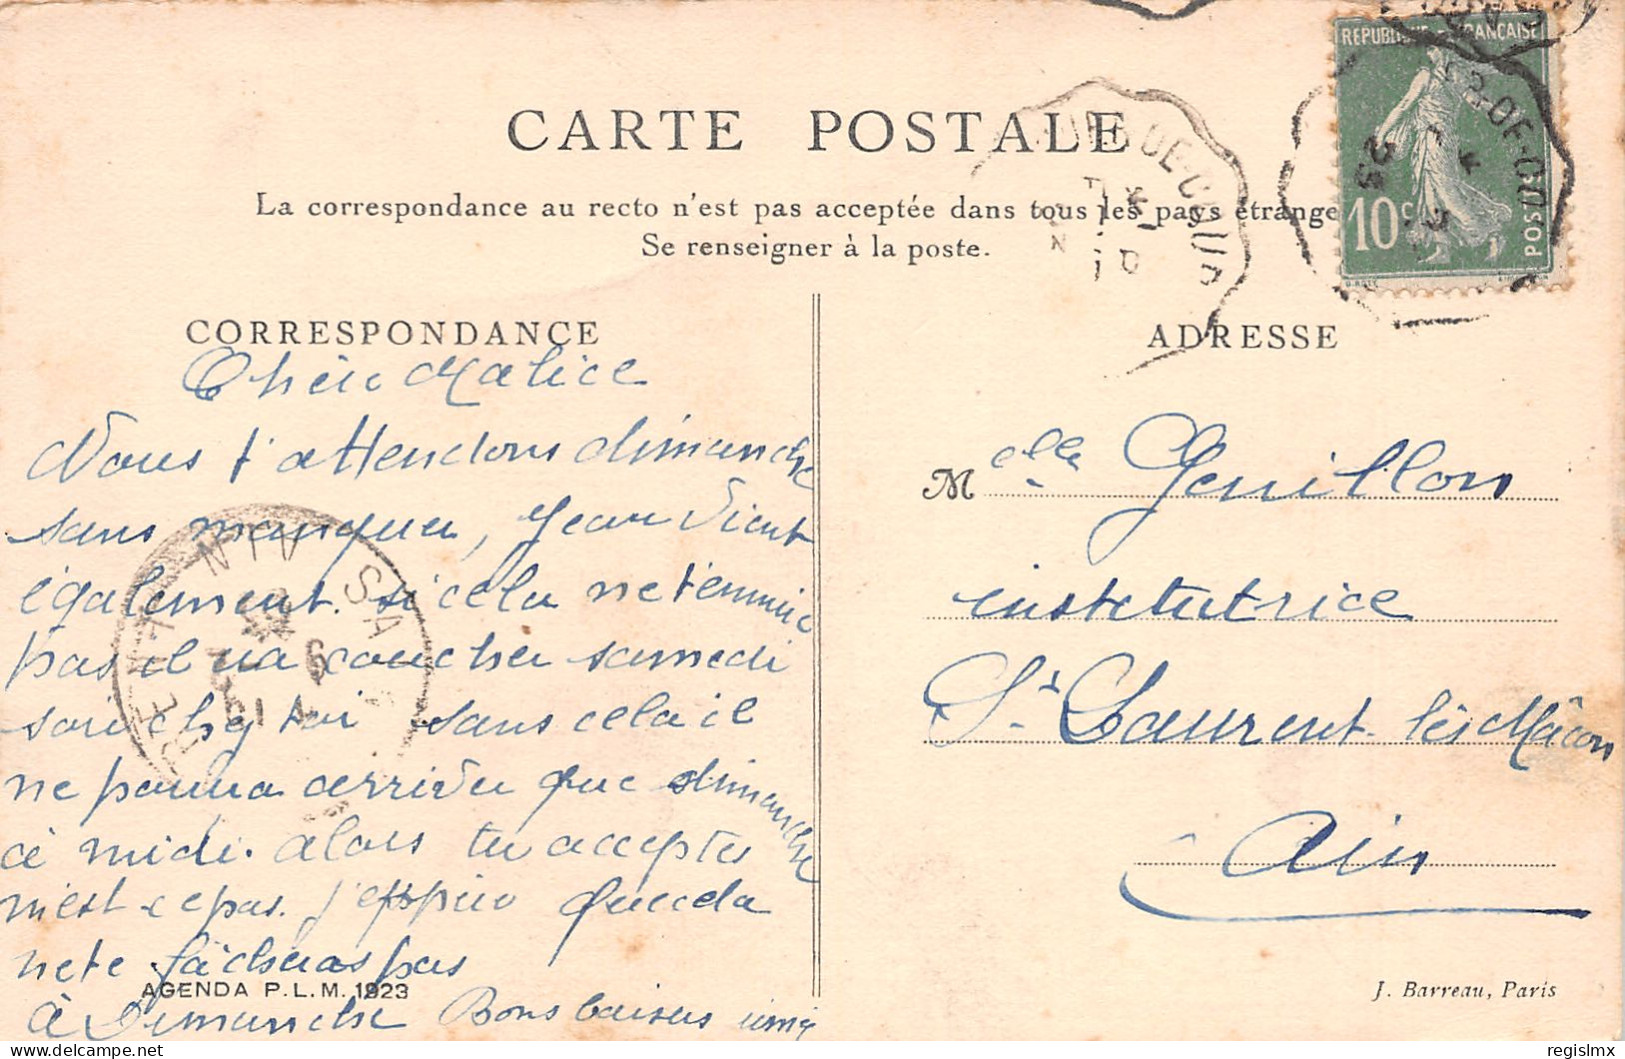 RÉPUBLIQUE FRANÇAISE
10c
POSTES
CARTE POSTALE
La correspondance au recto n'est pas acceptée dans tous les pays étrange
Se renseigner à la poste.
CORRESPONDANCE
Chère Malice
Nous t'attendons dimanche
sans manquer, Jean Vient
également. si cela ne t'ennuie
pas il ira coucher samedi
soir chez toi sans cela il
ne pourra arriver que dimanche
à midi. alors tu acceptes
n'est-ce pas. j'espère que cela
ne te fâchera pas
à Dimanche Bons baisers
AGENDA P.L.M. 1923
ADRESSE
Melle Genillon
institutrice
St Laurent lès Mâcon
Ain
J. Barreau, Paris
regislmx